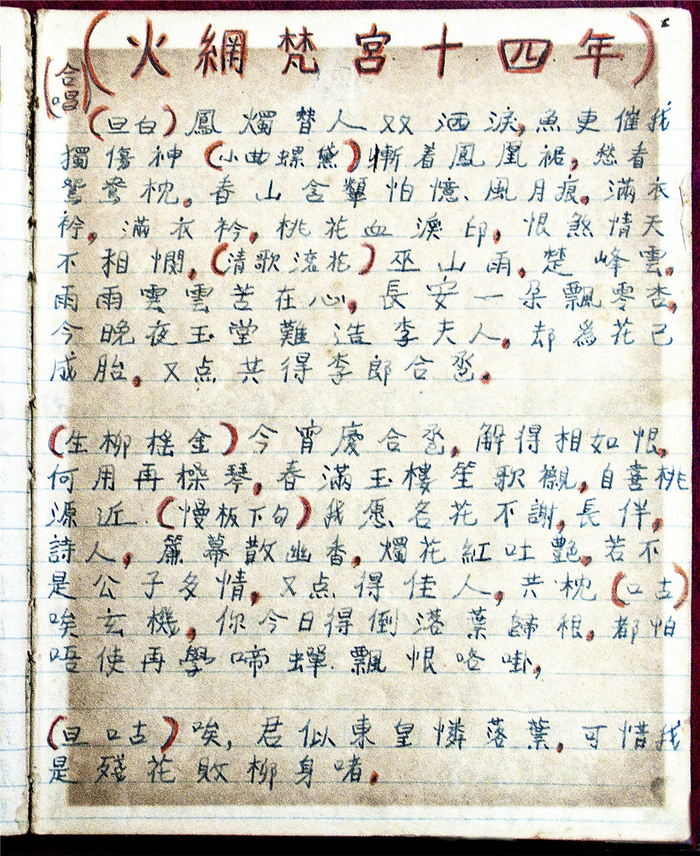 (火網梵宮十四年)
(合唱)
(旦白)鳳燭替人双洒淚,魚更催我
獨傷神(小曲螺黛)慚着鳳凰裙,愁看
鴛鴦枕。春山含顰怕憶、風月痕。滿衣
衿,滿衣衿,桃花血淚印,恨煞情天
不相憫,(清歌滾花)巫山雨,楚峰雲,
雨雨雲雲苦在心,長安一朵飄零杏,
今晚夜玉堂難造李夫人,却為花已
成胎,又点共得李郎合卺。
(生柳搖金)今宵慶合卺,解得相如恨,
何用再操琴,春滿玉樓笙歌襯,自喜桃
源近.(慢板下句)我愿名花不謝,長伴,
詩人,簾幕散幽香,燭花紅吐艷,若不
是公子多情,又点得佳人,共枕(口古)
唉玄機,你今日得倒落葉歸根,都怕
唔使再學啼蟬飄恨咯啩,
(旦口古)唉,君似東皇憐落葉,可惜我
是殘花敗柳身啫,